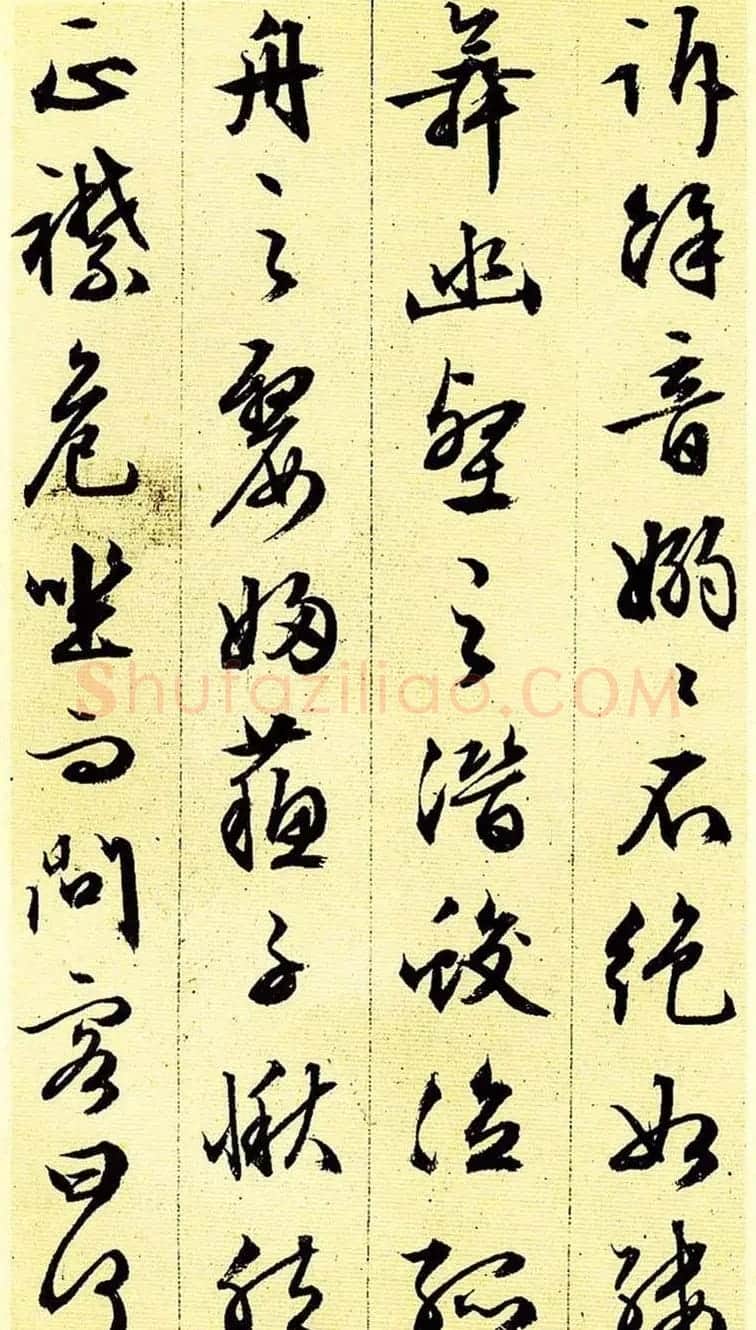 訴餘音嫋〻不絕如縷
舞幽壑之潛蛟泣孤
舟之嫠婦蘇子愀然
正襟危坐而問客曰何
Shufaziliao.COM